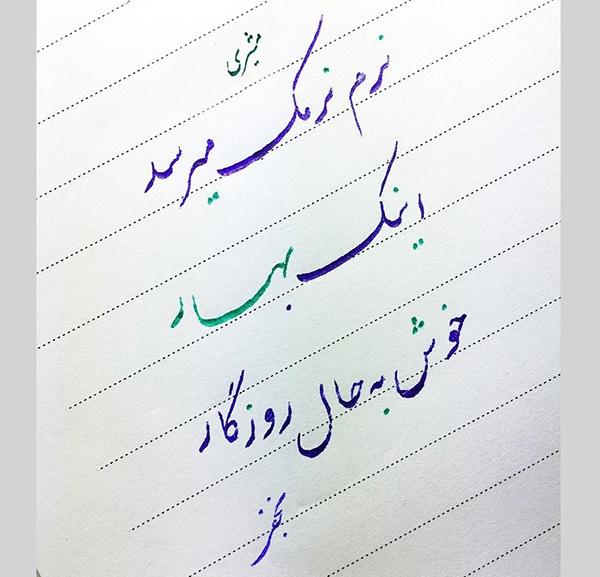 نرم نرمک میرسد
اینک بهار
خوش به حال روزگار